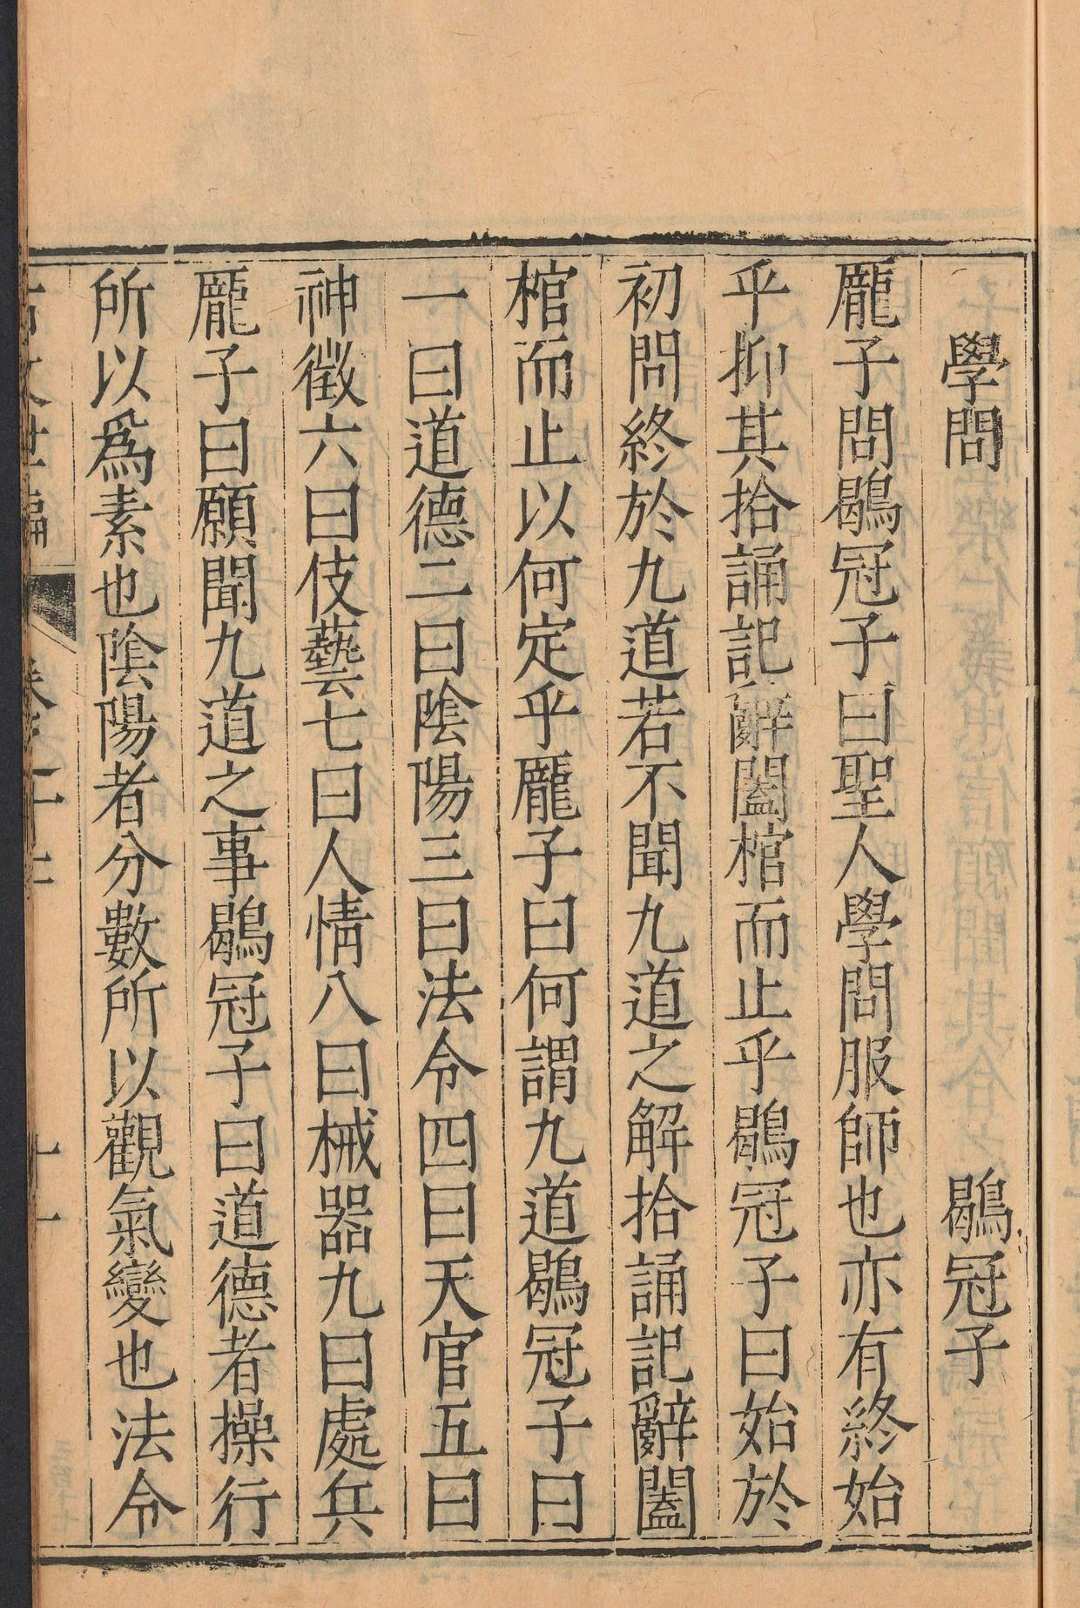 學問 鶡冠子
龐子問鶡冠子曰聖人學問服師也亦有終始
乎抑其拾誦記辭闔棺而止乎鶡冠子曰始於
初問終於九道若不聞九道之解拾誦記辭闔
棺而止以何定乎龐子曰何謂九道鶡冠子曰
一曰道德二曰陰陽三曰法令四曰天官五曰
神徵六曰伎藝七曰人情八曰械器九曰處兵
龐子曰願聞九道之事鶡冠子曰道德者操行
所以爲素也陰陽者分數所以觀氣變也法令